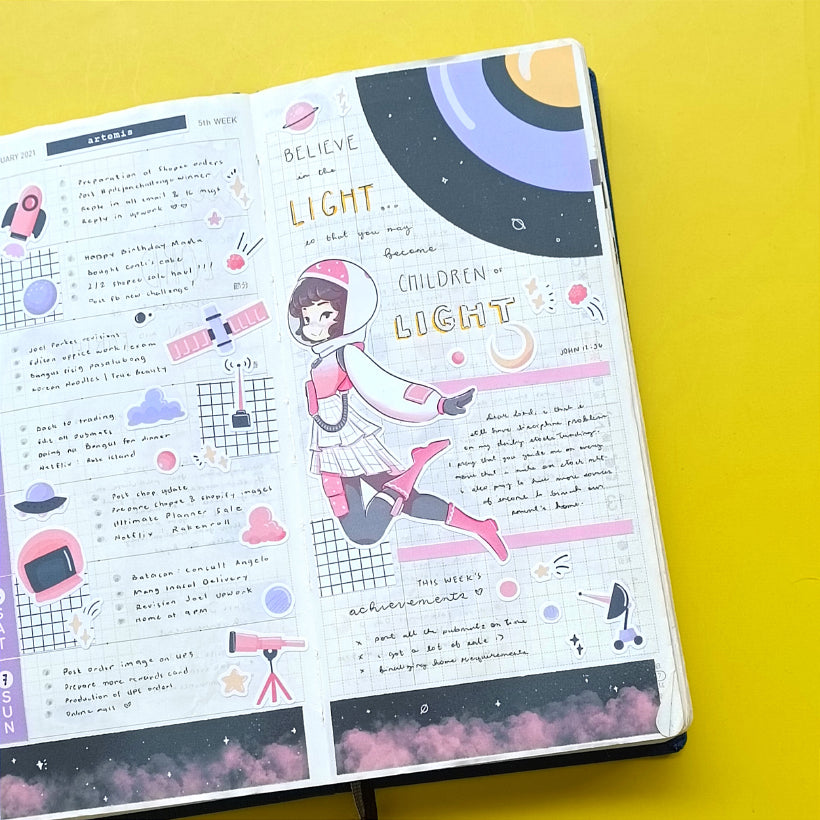 UARY 2021
artemis
5th WEEK
Preparation of Shopee orders
Post #pilijanchallenge winner
Reply in all email & IG msgs
Reply in upwork
Happy Birthday Madu
Bought Conti's cake
2/2 Shopee sale haul !!!
Post FB new challenge!
節分
Joel Forbes revisions
Edison office work / exam
Bangus Tisig pasalubong
Korean Noodles / True Beauty
Back to trading
Edit all Pubmats
Doing AU Bangus for dinner
Netflix: Rose Island
Post shop update
Prepare Shopee & Shopify images
Ultimate Planner Sale
Netflix Rakenroll
Batacan: concall Angelo
Mang Inasal Delivery
Revision Joel Upwork
Home at 9pm
SAT
Post order image on UPS
Prepare more rewards card
Production of UPS orders
Online mass
7
SUN
BELIEVE
in the
LIGHT...
so that you may
become
CHILDREN OF
LIGHT
JOHN 12:36
Dear Lord, i that i
still have discipline problem
on my daily stocks trading.
I pray that you guide me on every
move that i make on stock mkt.
i also pray to have more sources
of income to
home.
THIS WEEK'S
achievements
x post all the pubmats on time
x i got a lot of sale :)
x finalizing home requirements